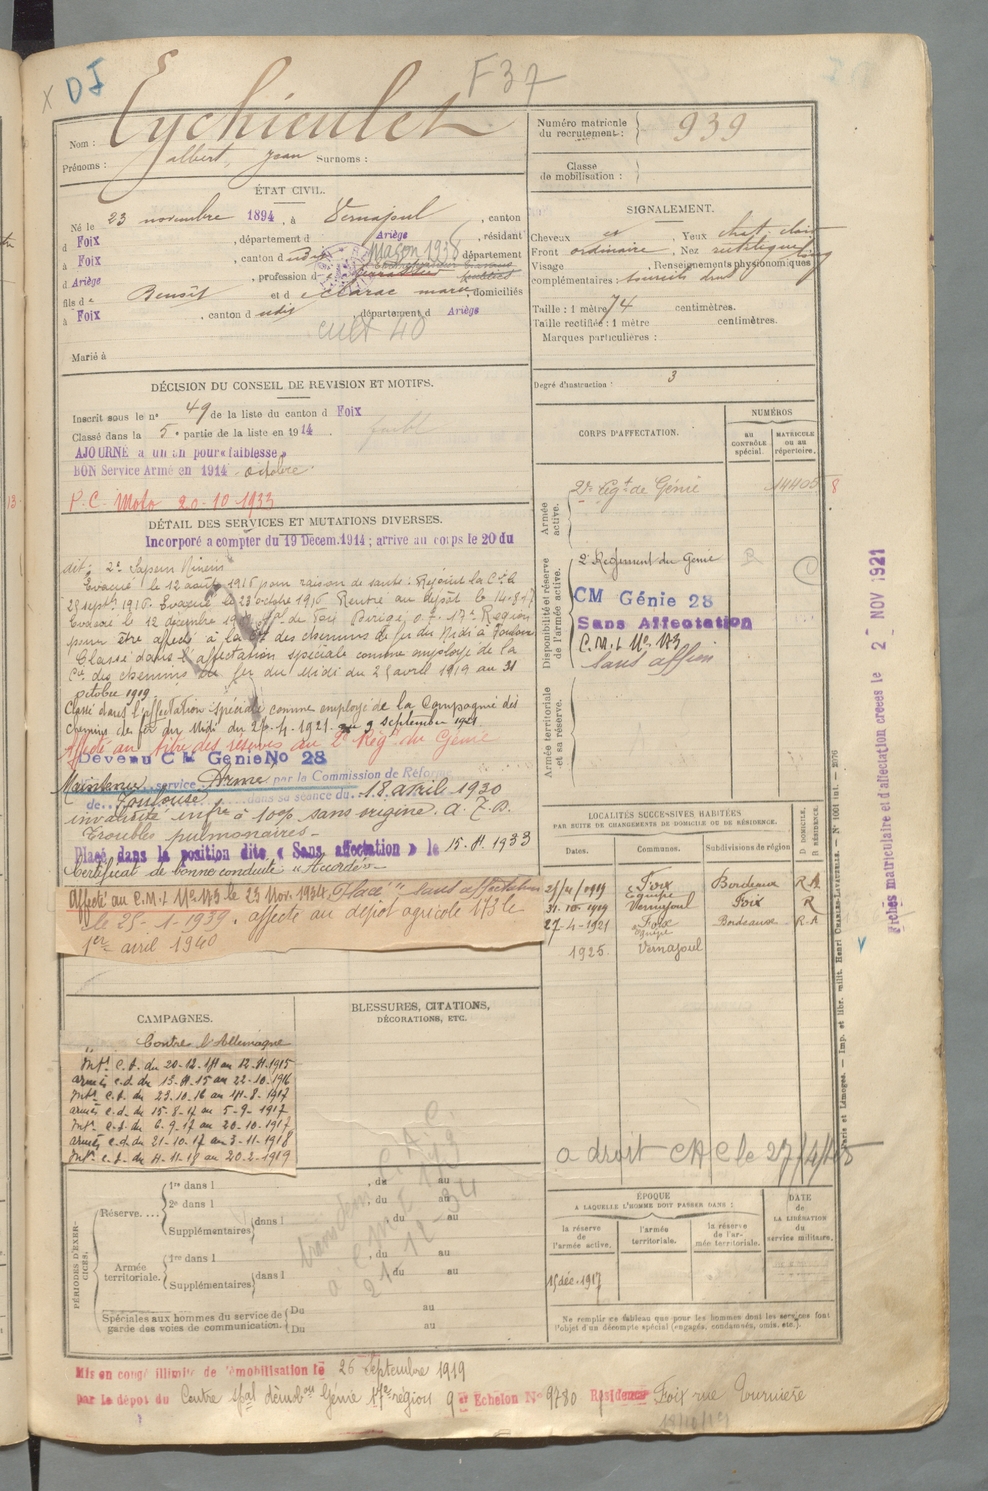 X DJ
F 37
Nom : Eychieulet
Prénoms : albert, jean Surnoms :
Numéro matricule du recrutement : 939
Classe de mobilisation :
ÉTAT CIVIL.
Né le 23 novembre 1894, à Vernajoul, canton
d Foix, département d Ariège, résidant
à Foix, canton d udit Maçon 1938 département
d Ariège, profession d
fils de Benoît et d Clarac marie, domiciliés
à Foix, canton d udit, département d Ariège
cult 40
Marié à
SIGNALEMENT.
Cheveux Yeux chat. clair
Front ordinaire, Nez rectiligne long
Visage , Renseignements physionomiques
complémentaires : sourcils droits
Taille : 1 mètre 74 centimètres.
Taille rectifiée : 1 mètre centimètres.
Marques particulières :
Degré d'instruction : 3
DÉCISION DU CONSEIL DE REVISION ET MOTIFS.
Inscrit sous le n° 49 de la liste du canton d Foix
Classé dans la 5e partie de la liste en 1914.
AJOURNÉ à un an pour « faiblesse »
BON Service Armé en 1914 octobre
P.C. Moto 20-10-1933
DÉTAIL DES SERVICES ET MUTATIONS DIVERSES.
Incorporé a compter du 19 Décem. 1914 ; arrive au corps le 20 du
dit; 2e Sapeur Mineur
Evacué le 12 août 1916 pour raison de santé. Rejoint la Cie le
25 sept. 1916. Evacué le 23 octobre 1916 Rentré au dépôt le 14-8-17
Evacué le 12 décembre
pour être affecté à la Cie des chemins de fer du Midi à Toulouse
Classé dans l'affectation spéciale comme employé de la
Cie des chemins de fer du Midi du 25 avril 1919 au 31
octobre 1919.
Classé dans l'affectation spéciale comme employé de la Compagnie des
chemins de fer du Midi du 26-4-1921 au 9 septembre 1921
Affecté au titre des réserves au 2e Régt du Génie
Devenu C M Génie No 28
Maintenu service Armé par la Commission de Réforme
de Toulouse dans sa séance du 18 avril 1930
invalidité infre à 10% sans origine.
Troubles pulmonaires -
Placé dans la position dite « Sans affectation » le 15. 11. 1933
Certificat de bonne conduite "Accordé"
Affecté au C.M.I. No 173 le 23 Nov. 1934. Placé " sans affectation
le 25-1-1939. affecté au dépôt agricole 173 le
1er avril 1940
CORPS D'AFFECTATION.
NUMÉROS
AU CONTRÔLE spécial.
MATRICULE OU AU répertoire.
Armée active.
2e Régt de Génie 14405 8
Disponibilité et réserve de l'armée active.
2e Régiment du Génie
CM Génie 28
Sans Affectation
C.M.I. No 173
Sans affon
Armée territoriale et sa réserve.
LOCALITÉS SUCCESSIVES HABITÉES
PAR SUITE DE CHANGEMENTS DE DOMICILE OU DE RÉSIDENCE.
Dates. Communes. Subdivisions de région D DOMICILE. R RÉSIDENCE.
25/4/1919 Foix Bordeaux R.A
31-10-1919 Vernajoul Foix R
27-4-1921 Foix Bordeaux R.A
1925. Vernajoul
Fiches matriculaire et d'affectation creées le 2 NOV 1921
Paris et Limoges. — Imp. et libr. milit. Henri Charles-Lavauzelle.
CAMPAGNES.
Contre l'Allemagne
Intr C.D. du 20-12-14 au 12-11-1915
armées c.d. du 13-11-15 au 22-10-1916
Intr C.D. du 23-10-16 au 14-8-1917
armées c.d. du 15-8-17 au 5-9-1917
Intr C.D. du 6-9-17 au 20-10-1917
armées c.d. du 21-10-17 au 3-11-1918
Intr C.D. du 4-11-18 au 20-2-1919
BLESSURES, CITATIONS,
DÉCORATIONS, ETC.
a droit CAC le 27/4/
PÉRIODES D'EXERCICES.
Réserve....
1re dans l , du au
2e dans l , du au
Supplémentaires dans l du au
Armée territoriale.
1re dans l , du au
Supplémentaires dans l du au
Spéciales aux hommes du service de garde des voies de communication.
Du au
Du au
ÉPOQUE
A LAQUELLE L'HOMME DOIT PASSER DANS :
la réserve de l'armée active.
l'armée territoriale.
la réserve de l'armée territoriale.
DATE de LA LIBÉRATION du service militaire.
15 déc. 1917
Ne remplir ce tableau que pour les hommes dont les services font
l'objet d'un décompte spécial (engagés, condamnés, omis, etc.).
Mis en congé illimité de démobilisation le 26 Septembre 1919
par le dépôt du Centre spal démobon Génie 17e région 9e Echelon No 9780 Residence Foix rue Tournière
18/10/19